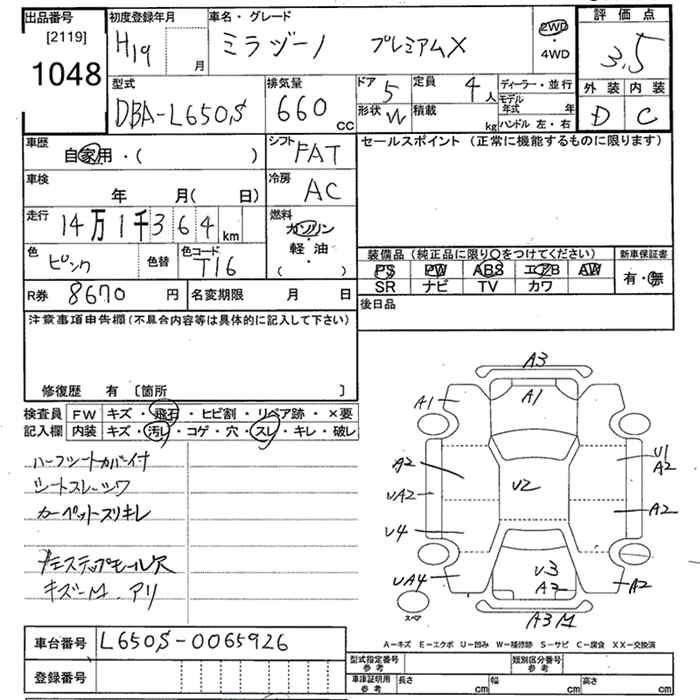 出品番号
[2119]
1048
初度登録年月
H19 月
車名・グレード
ミラジーノ プレミアムX
2WD
・
4WD
評価点
3.5
外装 内装
D C
型式
DBA-L650S
排気量
660 CC
ドア 5
定員 4人
形状 W
積載 kg
ディーラー・並行
モデル年式 年
ハンドル 左・右
車歴
自家用・( )
シフト
FAT
車検
年 月( 日)
冷房
AC
走行
14万1千364 km
燃料
ガソリン
軽・油
( )
色
ピンク
色替
色コード
T16
R券 8670 円
名変期限 月 日
セールスポイント (正常に機能するものに限ります)
装備品 (純正品に限り○をつけてください)
PS PW ABS エアB AW
SR ナビ TV カワ
新車保証書
有・無
後日品
注意事項申告欄 (不具合内容等は具体的に記入して下さい)
修復歴 有 〔箇所 〕
検査員記入欄
FW キズ・飛石・ヒビ割・リペア跡・×要
内装 キズ・汚レ・コゲ・穴・スレ・キレ・破レ
ハーフシートカバー付
シートスレ～シワ
カーペットスリキレ
ステップモール欠
キズ～M.アリ
A3
A1
A1
A2
U1
A2
UA2
U2
A2
U4
UA4
U3
A3
A2
スペア
A3 M
A－キズ E－エクボ U－凹み W－補修跡 S－サビ C－腐食 XX－交換済
車台番号 L650S-0065926
登録番号
型式指定番号
参考
類別区分番号
参考
車庫証明用
参考
長さ cm 幅 cm 高さ cm